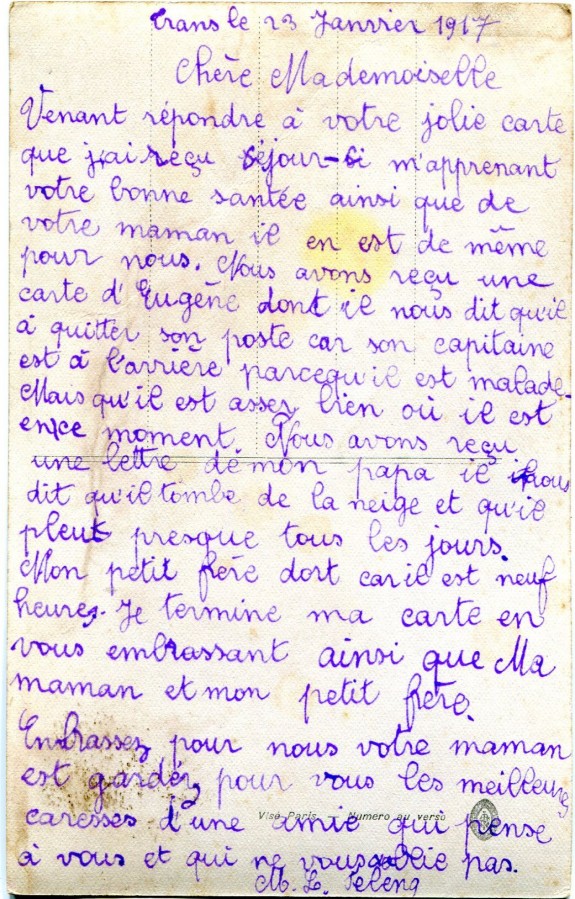 Trans le 23 Janvier 1917
Chère Mademoiselle
Venant répondre à votre jolie carte
que j'ai reçu séjour-si m'apprenant
votre bonne santée ainsi que de
votre maman il en est de même
pour nous. Nous avons reçu une
carte d'Eugène dont il nous dit qu'il
à quitter son poste car son capitaine
est à l'arrière parcequ'il est malade.
Mais qu'il est assez bien où il est
en ce moment. Nous avons reçu
une lettre de mon papa il nous
dit qu'il tombe de la neige et qu'il
pleut presque tous les jours.
Mon petit frère dort car il est neuf
heures. Je termine ma carte en
vous embrassant ainsi que Ma
maman et mon petit frère.
Embrassez pour nous votre maman
est gardéz pour vous les meilleures
caresses d'une amie qui pense
Visé Paris. — Numero au verso
à vous et qui ne vous oublie pas.
M. L.